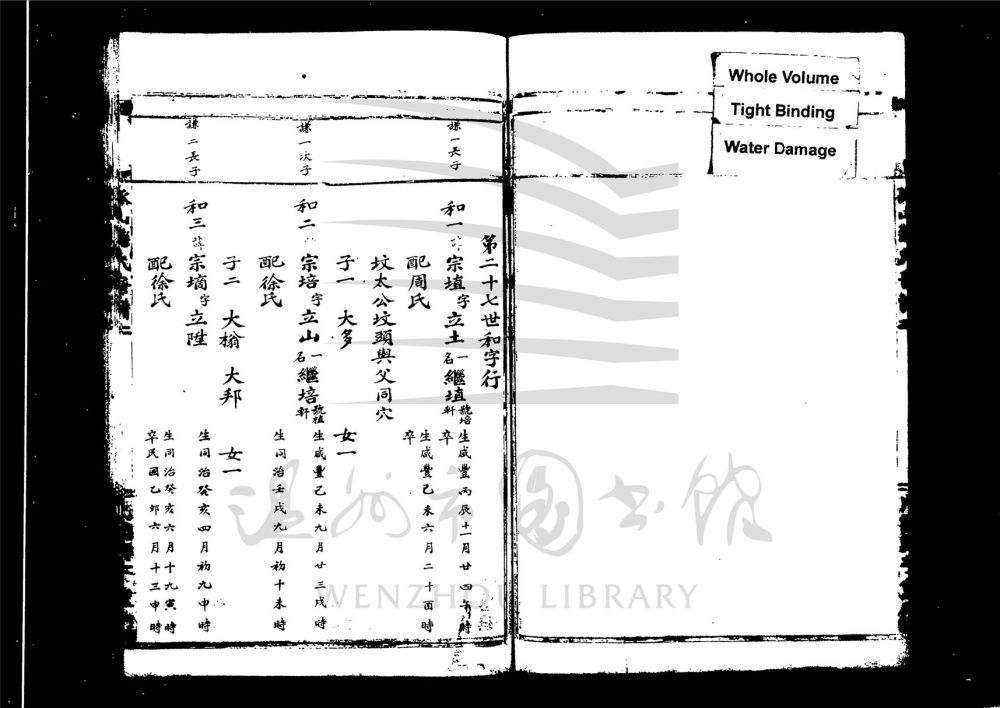 Whole Volume
Tight Binding
Water Damage
第二十七世和字行
謙一長子
和一 諱宗埴字立土一名繼埴號培軒 生咸豐丙辰十一月廿四 時 卒
配周氏 生咸豐己未六月二十酉時 卒
坟太公坟頭與父同穴
子一 大多 女一
謙一次子
和二 宗培字立山一名繼培號植軒 生咸豐己未九月廿三戌時
配徐氏 生同治壬戌九月初十未時
子二 大榒 大邦 女一
謙二長子
和三 諱宗墑字立陞 生同治癸亥四月初九申時
配徐氏 生同治癸亥六月十九寅時 卒民國乙卯六月十三申時
温州市圖書館
WENZHOU LIBRARY